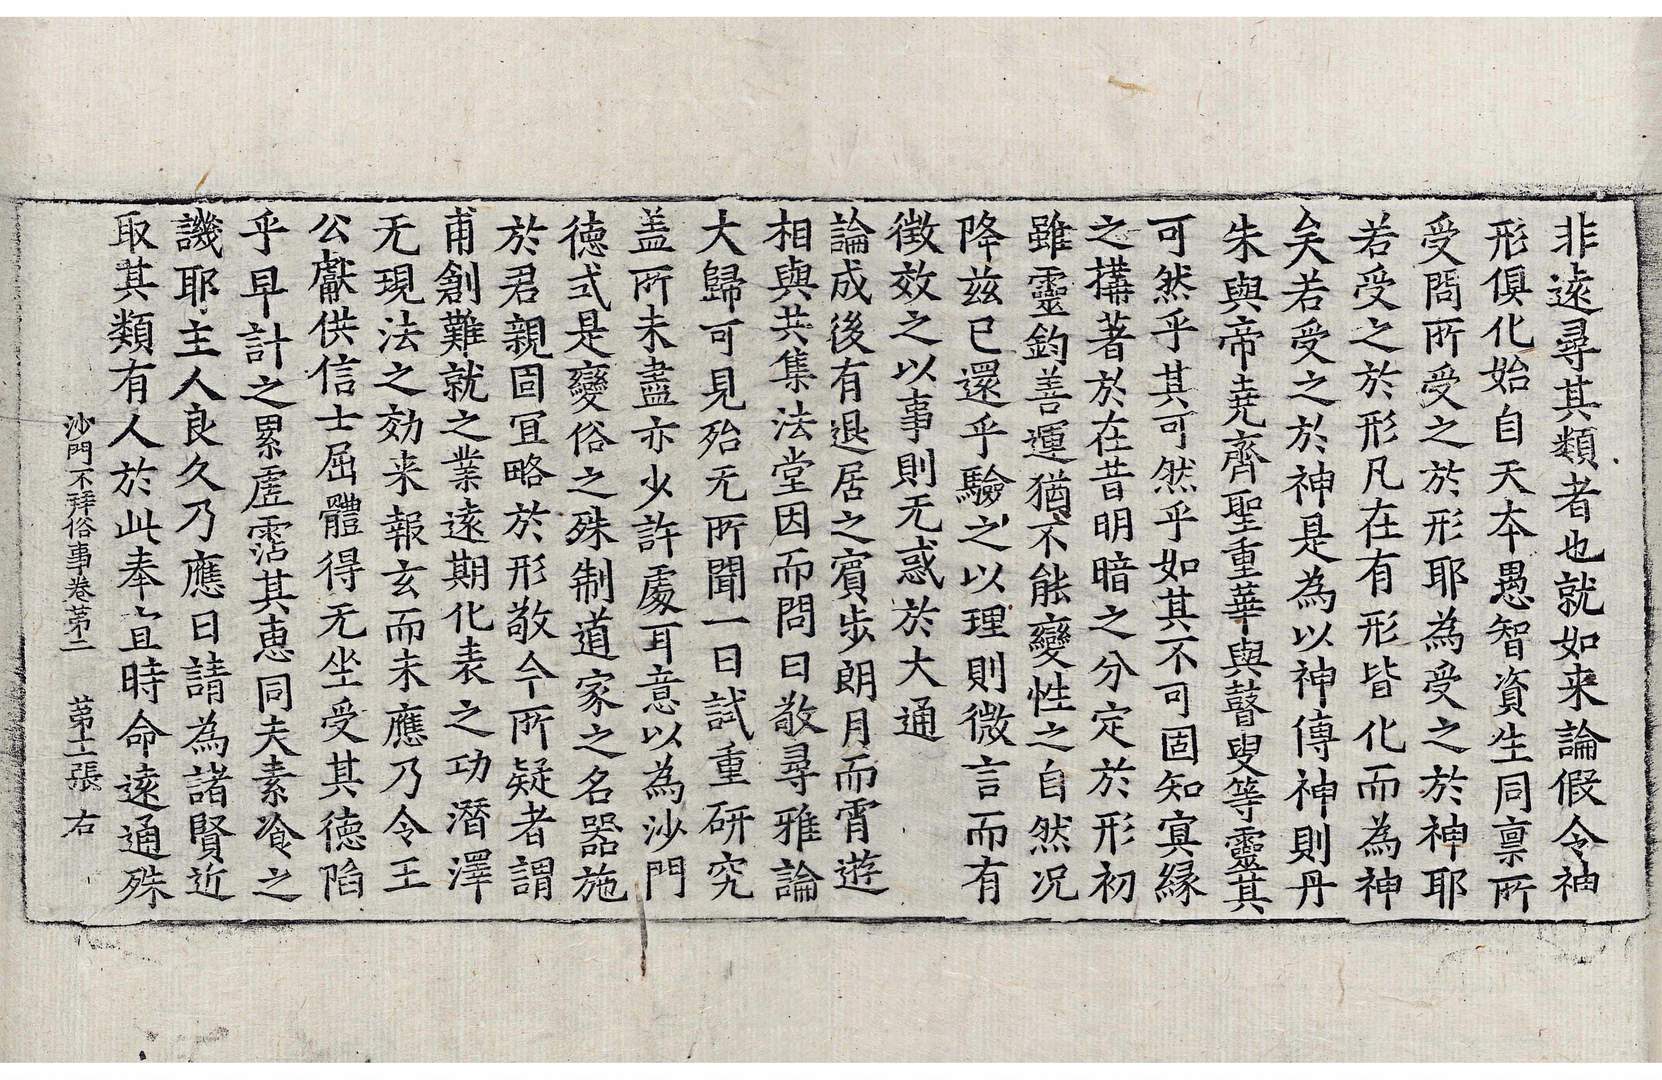 非遠尋其類者也就如来論假令神
形俱化始自天本愚智資生同禀所
受問所受之於形耶為受之於神耶
若受之於形凡在有形皆化而為神
矣若受之於神是為以神傳神則丹
朱與帝堯齊聖重華與瞽叟等靈其
可然乎其可然乎如其不可固知㝠緣
之構著於在昔明暗之分定於形初
雖靈鈞善運猶不能變性之自然况
降兹已還乎驗之以理則微言而有
徵效之以事則无惑於大通
論成後有退居之賓步朗月而宵遊
相與共集法堂因而問曰敬尋雅論
大歸可見殆无所聞一日試重研究
盖所未盡亦少許處耳意以為沙門
德式是變俗之殊制道家之名器施
於君親固冝略於形敬今所疑者謂
甫創難就之業遠期化表之功潛澤
无現法之効来報玄而未應乃令王
公獻供信士屈體得无坐受其德陷
乎早計之累虛霑其惠同夫素飡之
譏耶主人良久乃應曰請為諸賢近
取其類有人於此奉宣時命遠通殊
沙門不拜俗事卷苐二 苐十二張 右